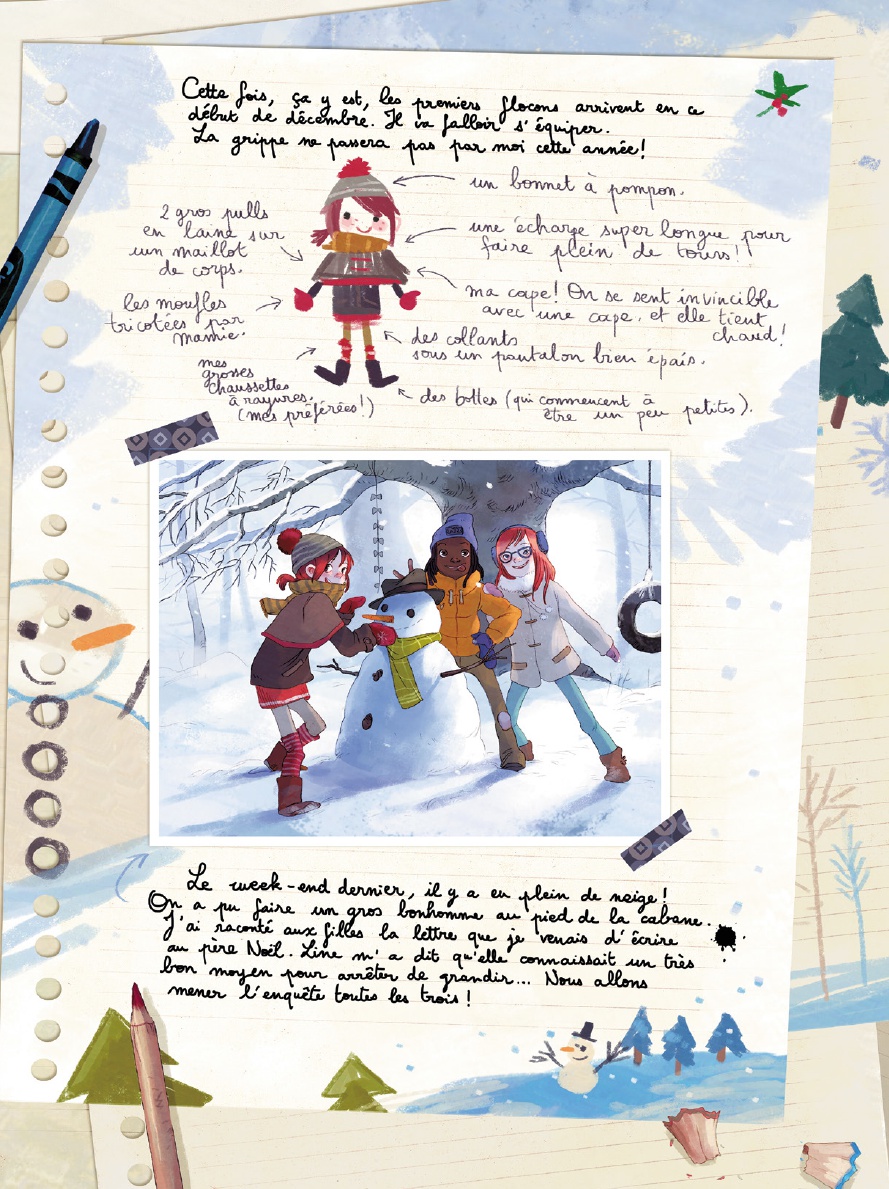 Cette fois, ça y est, les premiers flocons arrivent en ce
début de décembre. Il va falloir s'équiper.
La grippe ne passera pas par moi cette année!
un bonnet à pompon.
2 gros pulls
en laine sur
un maillot
de corps.
une écharpe super longue pour
faire plein de tours!
ma cape! On se sent invincible
avec une cape, et elle tient
chaud!
les moufles
tricotées par
Mamie.
des collants
sous un pantalon bien épais.
mes
grosses
chaussettes
à rayures.
(mes préférées!)
des bottes (qui commencent à
être un peu petites).
Le week-end dernier, il y a eu plein de neige!
On a pu faire un gros bonhomme au pied de la cabane.
J'ai raconté aux filles la lettre que je venais d'écrire
au père Noël. Line m'a dit qu'elle connaissait un très
bon moyen pour arrêter de grandir... Nous allons
mener l'enquête toutes les trois!